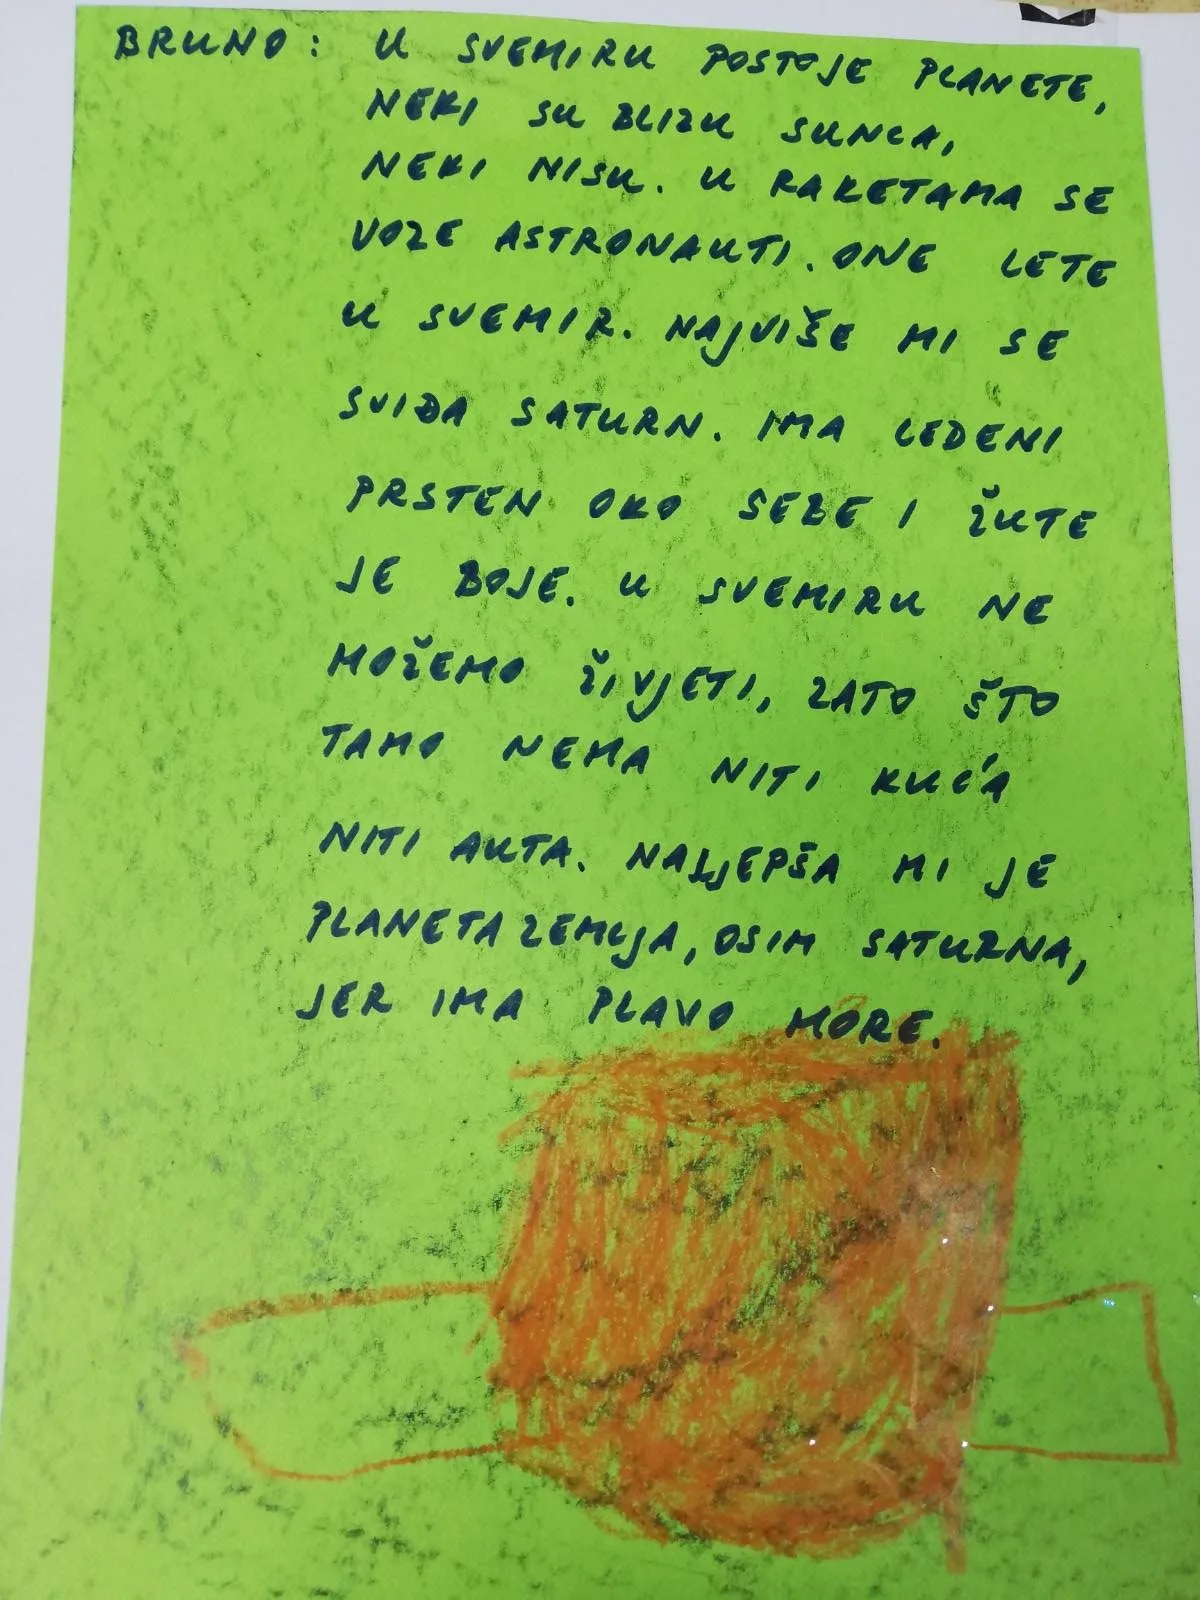 BRUNO: U SVEMIRU POSTOJE PLANETE,
NEKI SU BLIZU SUNCA,
NEKI NISU. U RAKETAMA SE
VOZE ASTRONAUTI. ONE LETE
U SVEMIR. NAJVIŠE MI SE
SVIĐA SATURN. IMA LEDENI
PRSTEN OKO SEBE I ŽUTE
JE BOJE. U SVEMIRU NE
MOŽEMO ŽIVJETI, ZATO ŠTO
TAMO NEMA NITI KUĆA
NITI AUTA. NAJLJEPŠA MI JE
PLANETA ZEMLJA, OSIM SATURNA,
JER IMA PLAVO MORE.